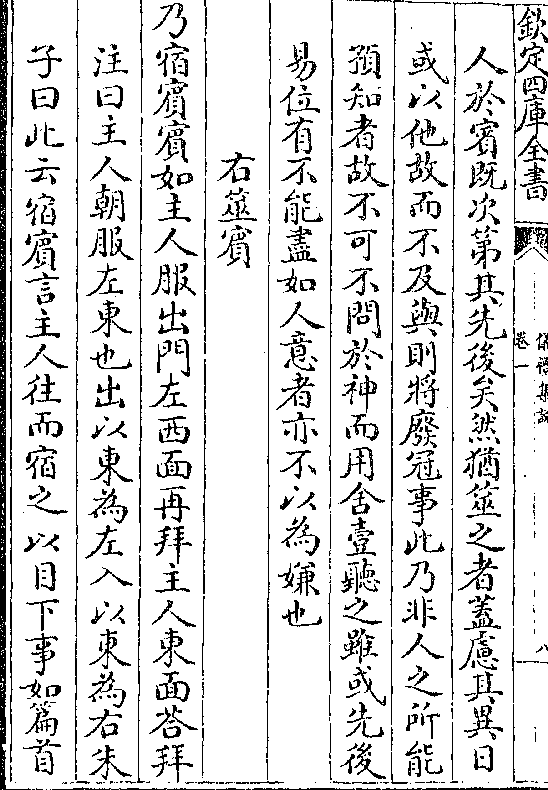 欽定四庫全書
儀禮集說
卷一
八
人於賓既次第其先後矣然猶筮之者蓋慮其異日
或以他故而不及與則將廢冠事此乃非人之所能
預知者故不可不問於神而用舍壹聽之雖或先後
易位有不能盡如人意者亦不以為嫌也
右筮賓
乃宿賓賓如主人服出門左西面再拜主人東面荅拜
注曰主人朝服左東也出以東為左入以東為右朱
子曰此云宿賓言主人往而宿之以目下事如篇首